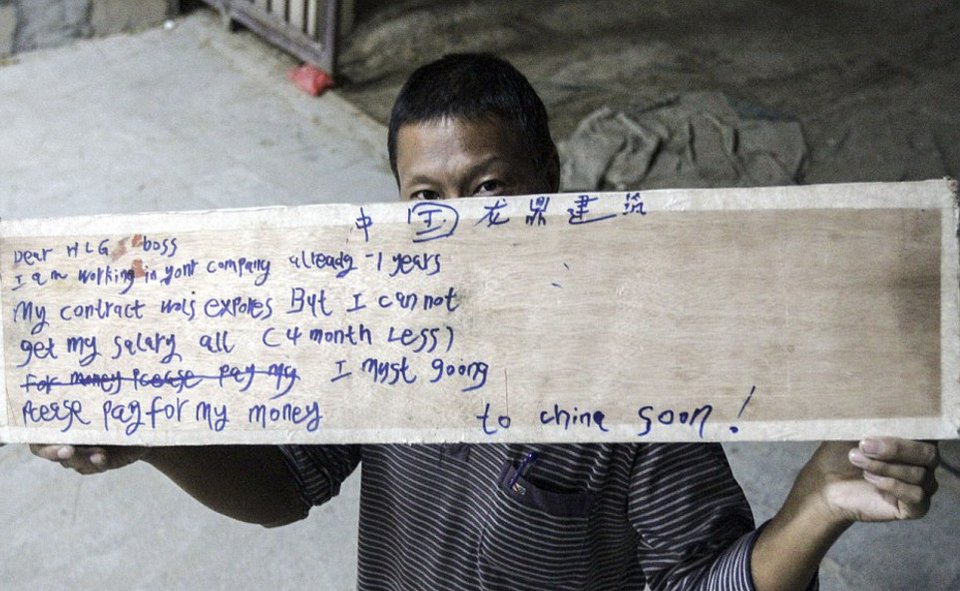 中国龙鼎建筑
Dear HLG boss
I am working in yont company already -1 years
My contract wasj expores But I can not
get my salary all (4 month Less)
For money Pcease pay my I myst goong
Pcease pay for my money to china soon!